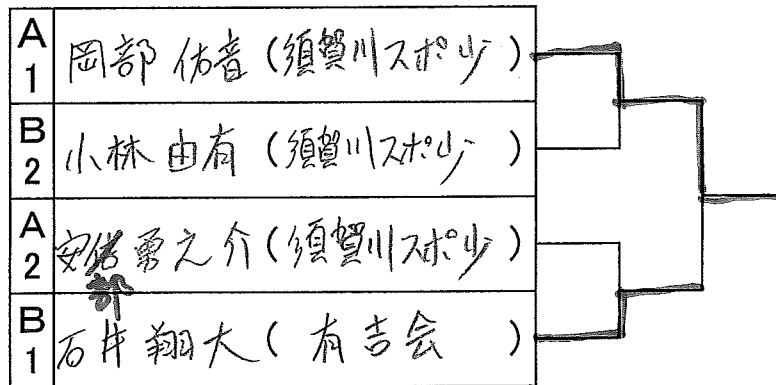 A1 岡部 佑音 (須賀川スポ少)
B2 小林 由有 (須賀川スポ少)
A2 安部 勇之介 (須賀川スポ少)
B1 石井 翔大 (有吉会)